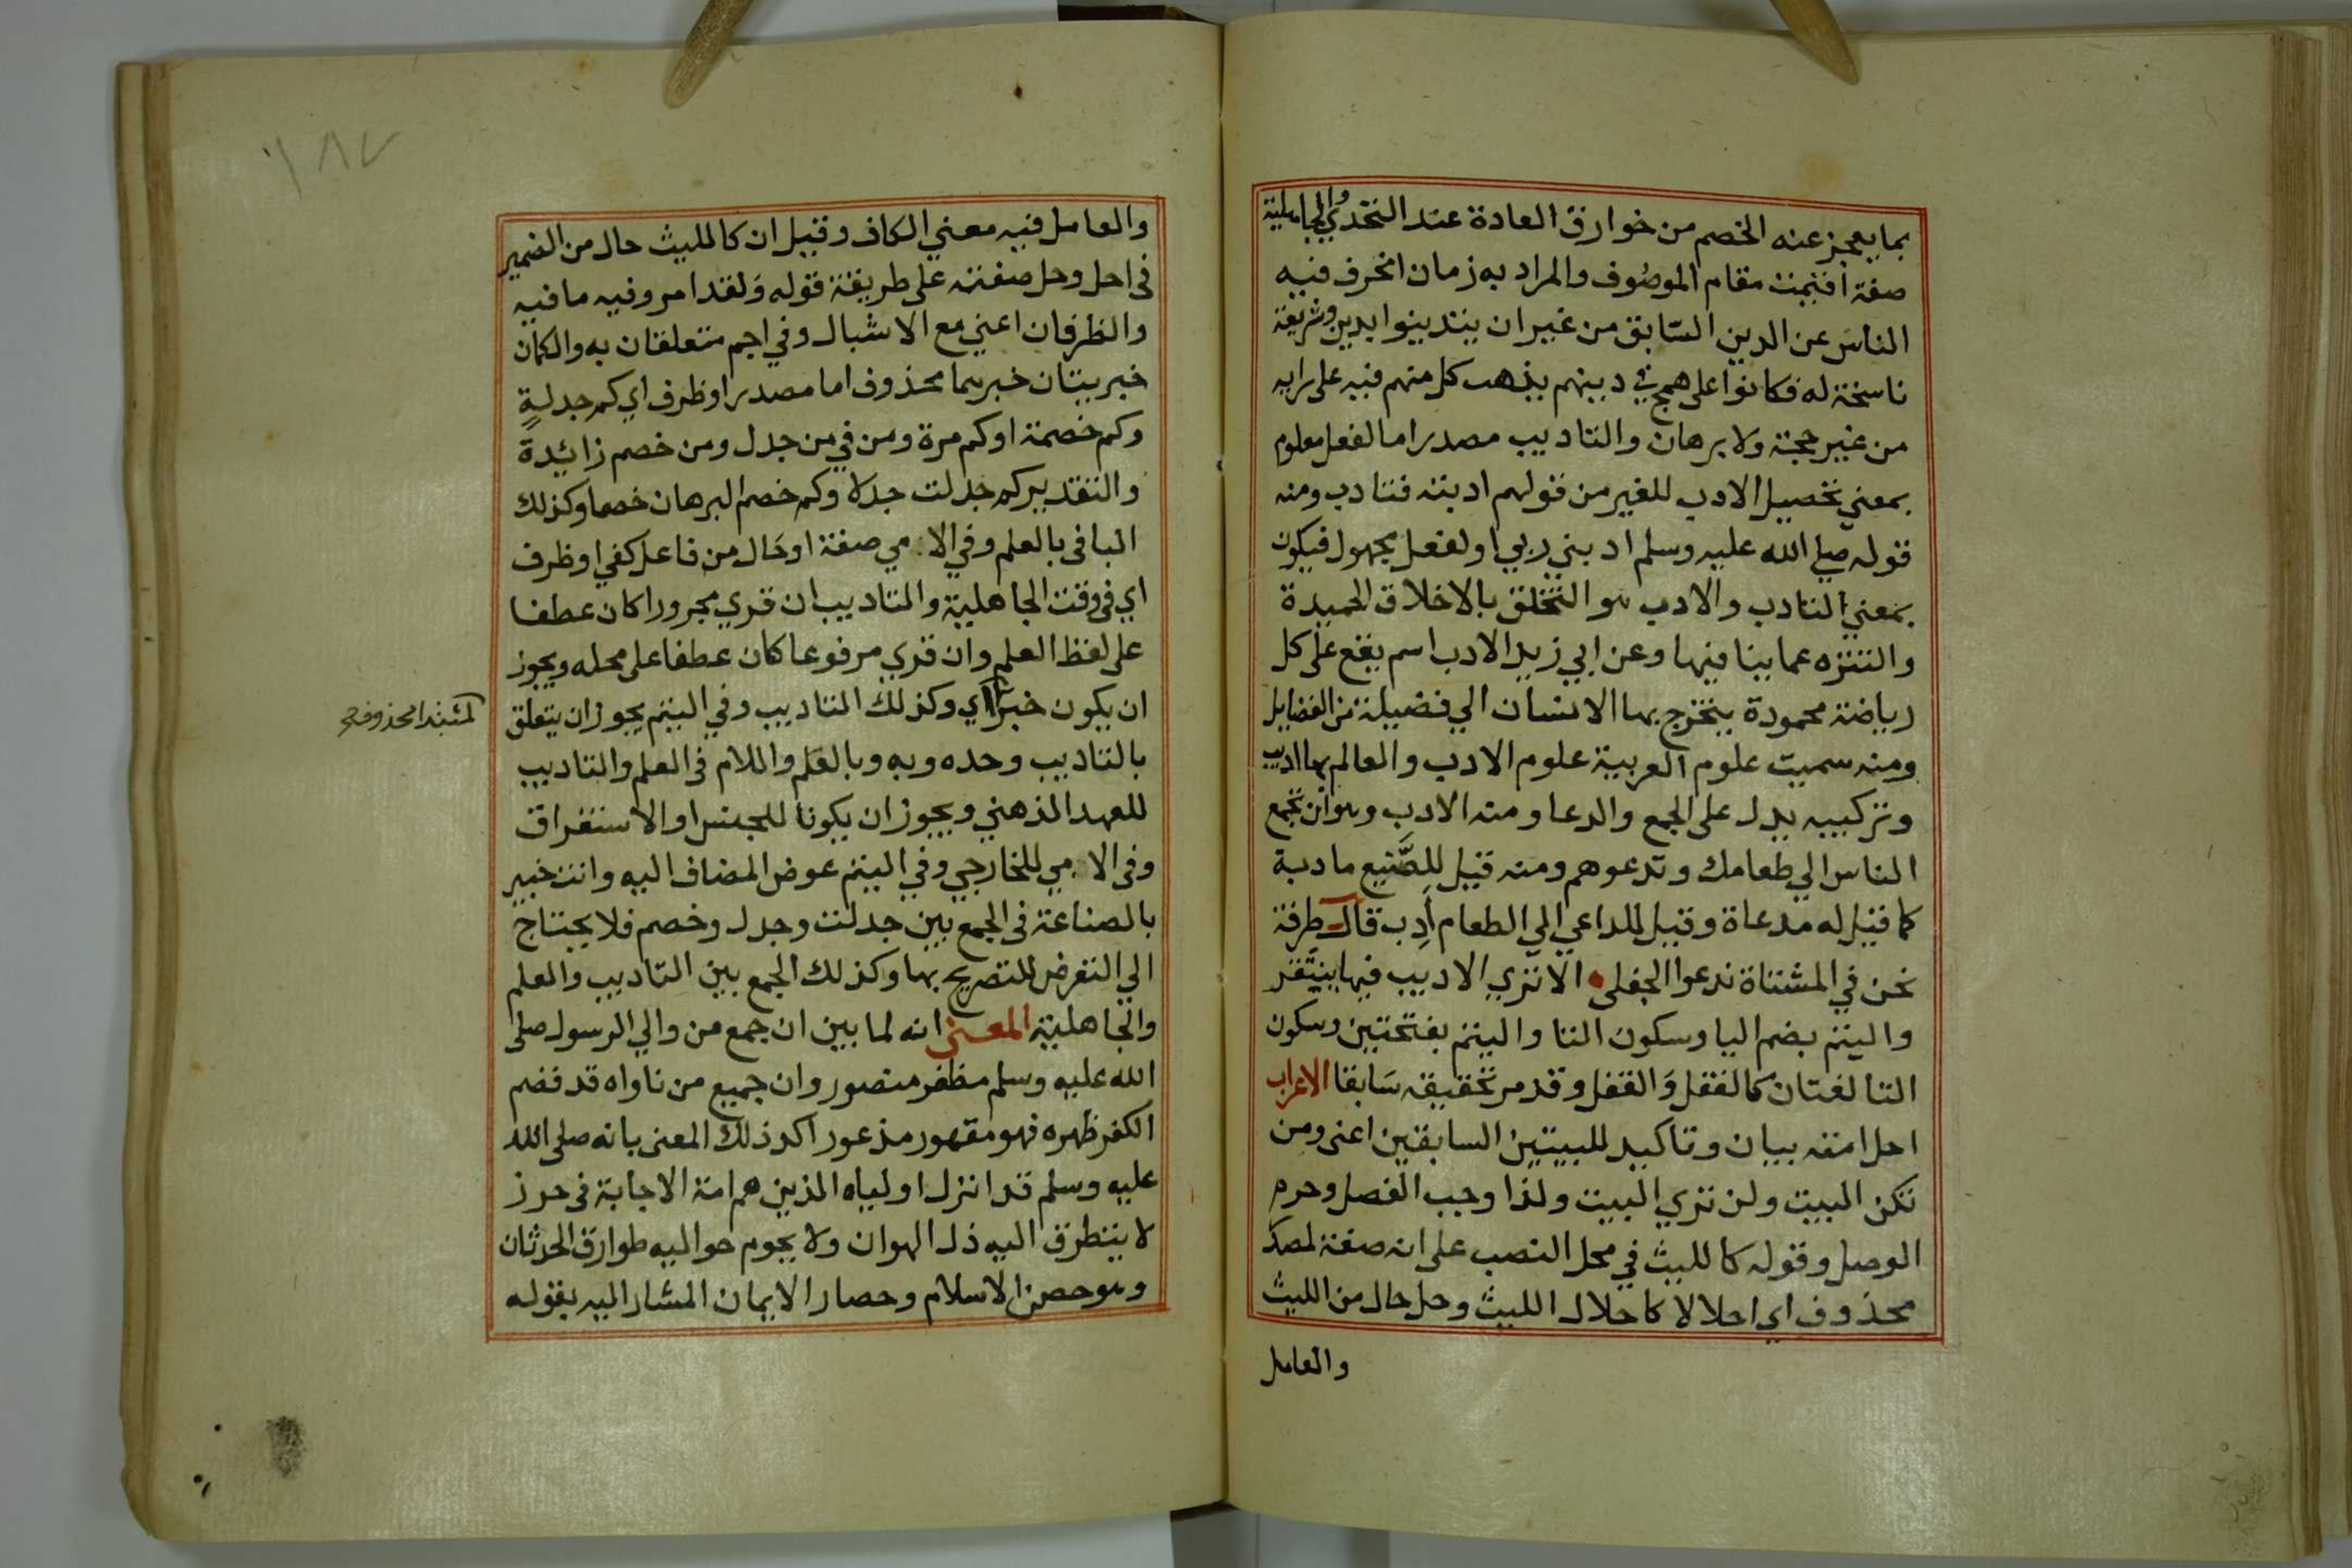 بما يعجز عنه الخصم من خوارق العادة عند التحدي والجاهلية
صفة اقيمت مقام الموصوف والمراد به زمان انحرف فيه
الناس عن الدين السابق من غير ان يتدينوا بدين وشريعة
ناسخة له فكانوا على همج في دينهم يذهب كل منهم فيه على رايه
من غير حجة ولا برهان والتاديب مصدر اما لفعل معلوم
بمعني تحصيل الادب للغير من قولهم ادبته فتادب ومنه
قوله صلي الله عليه وسلم ادبني ربي او لفعل مجهول فيكون
بمعني التادب والادب هو التخلق بالاخلاق الحميدة
والتنزه عما ينافيها وعن ابي زيد الادب اسم يقع على كل
رياضة محمودة يتخرج بها الانسان الي فضيلة من الفضايل
ومنه سميت علوم العربية علوم الادب والعالم بها اديب
وتركيبه يدل على الجمع والدعا ومنه الادب وهو ان تجمع
الناس الي طعامك وتدعوهم ومنه قيل للصنيع مادبة
كما قيل له مدعاة وقيل للداعي الي الطعام أدِب قال طرفة
نحن في المشتاة ندعوا الجفلى الا تري الاديب فيها ينتقر
واليتم بضم اليا وسكون التا واليتم بفتحتين وسكون
التا لغتان كالفقل والقفل وقد مر تحقيقه سابقا الاعراب
احل امته بيان وتاكيد للبيتين السابقين اعنى ومن
تكن البيت ولن تري البيت ولذا وجب الفصل وحرم
الوصل وقوله كالليث في محل النصب على انه صفة لمصدر
محذوف اي احلالا كاحلال الليث وحل حال من الليث
والعامل
١٨٧
والعامل فيه معني الكاف وقيل ان كالليث حال من الضمير
فى احل وحل صفته على طريقة قوله ولقد امر وفيه ما فيه
والظرفان اعني مع الاشبال وفي اجم متعلقان به والكمان
خبريتان خبرهما محذوف اما مصدر او ظرف اي كم جدلةٍ
وكم خصمة او كم مرة ومن في من جدل ومن خصم زائدة
والتقدير كم جدلت جدلا وكم خصم البرهان خصما وكذلك
البا فى بالعلم وفي الامي صفة او حال من فاعل كفي او ظرف
اي فى وقت الجاهلية والتاديب ان قري مجرورا كان عطفا
على لفظ العلم وان قري مرفوعا كان عطفا على محله ويجوز
ان يكون خبرا اي وكذلك التاديب وفي اليتم يجوز ان يتعلق
لمبتدا محذوف صح
بالتاديب وحده وبه وبالعلم واللام فى العلم والتاديب
للعهد الذهني ويجوز ان يكونا للجنس او الاستغراق
وفى الامي للخارجي وفي اليتم عوض المضاف اليه وانت خبير
بالصناعة فى الجمع بين جدلت وجدل وخصم فلا يحتاج
الي التعرض للتصريح بها وكذلك الجمع بين التاديب والعلم
والجاهلية المعنى انه لما بين ان جمع من والي الرسول صلى
الله عليه وسلم مظفر منصور وان جميع من ناواه قد قصم
الكفر ظهره فهو مقهور مذعور اكد ذلك المعنى بانه صلى الله
عليه وسلم قد انزل اولياه الذين هم امة الاجابة فى حرز
لا يتطرق اليه ذل الهوان ولا يحوم حواليه طوارق الحدثان
وهو حصن الاسلام وحصار الايمان المشار اليه بقوله